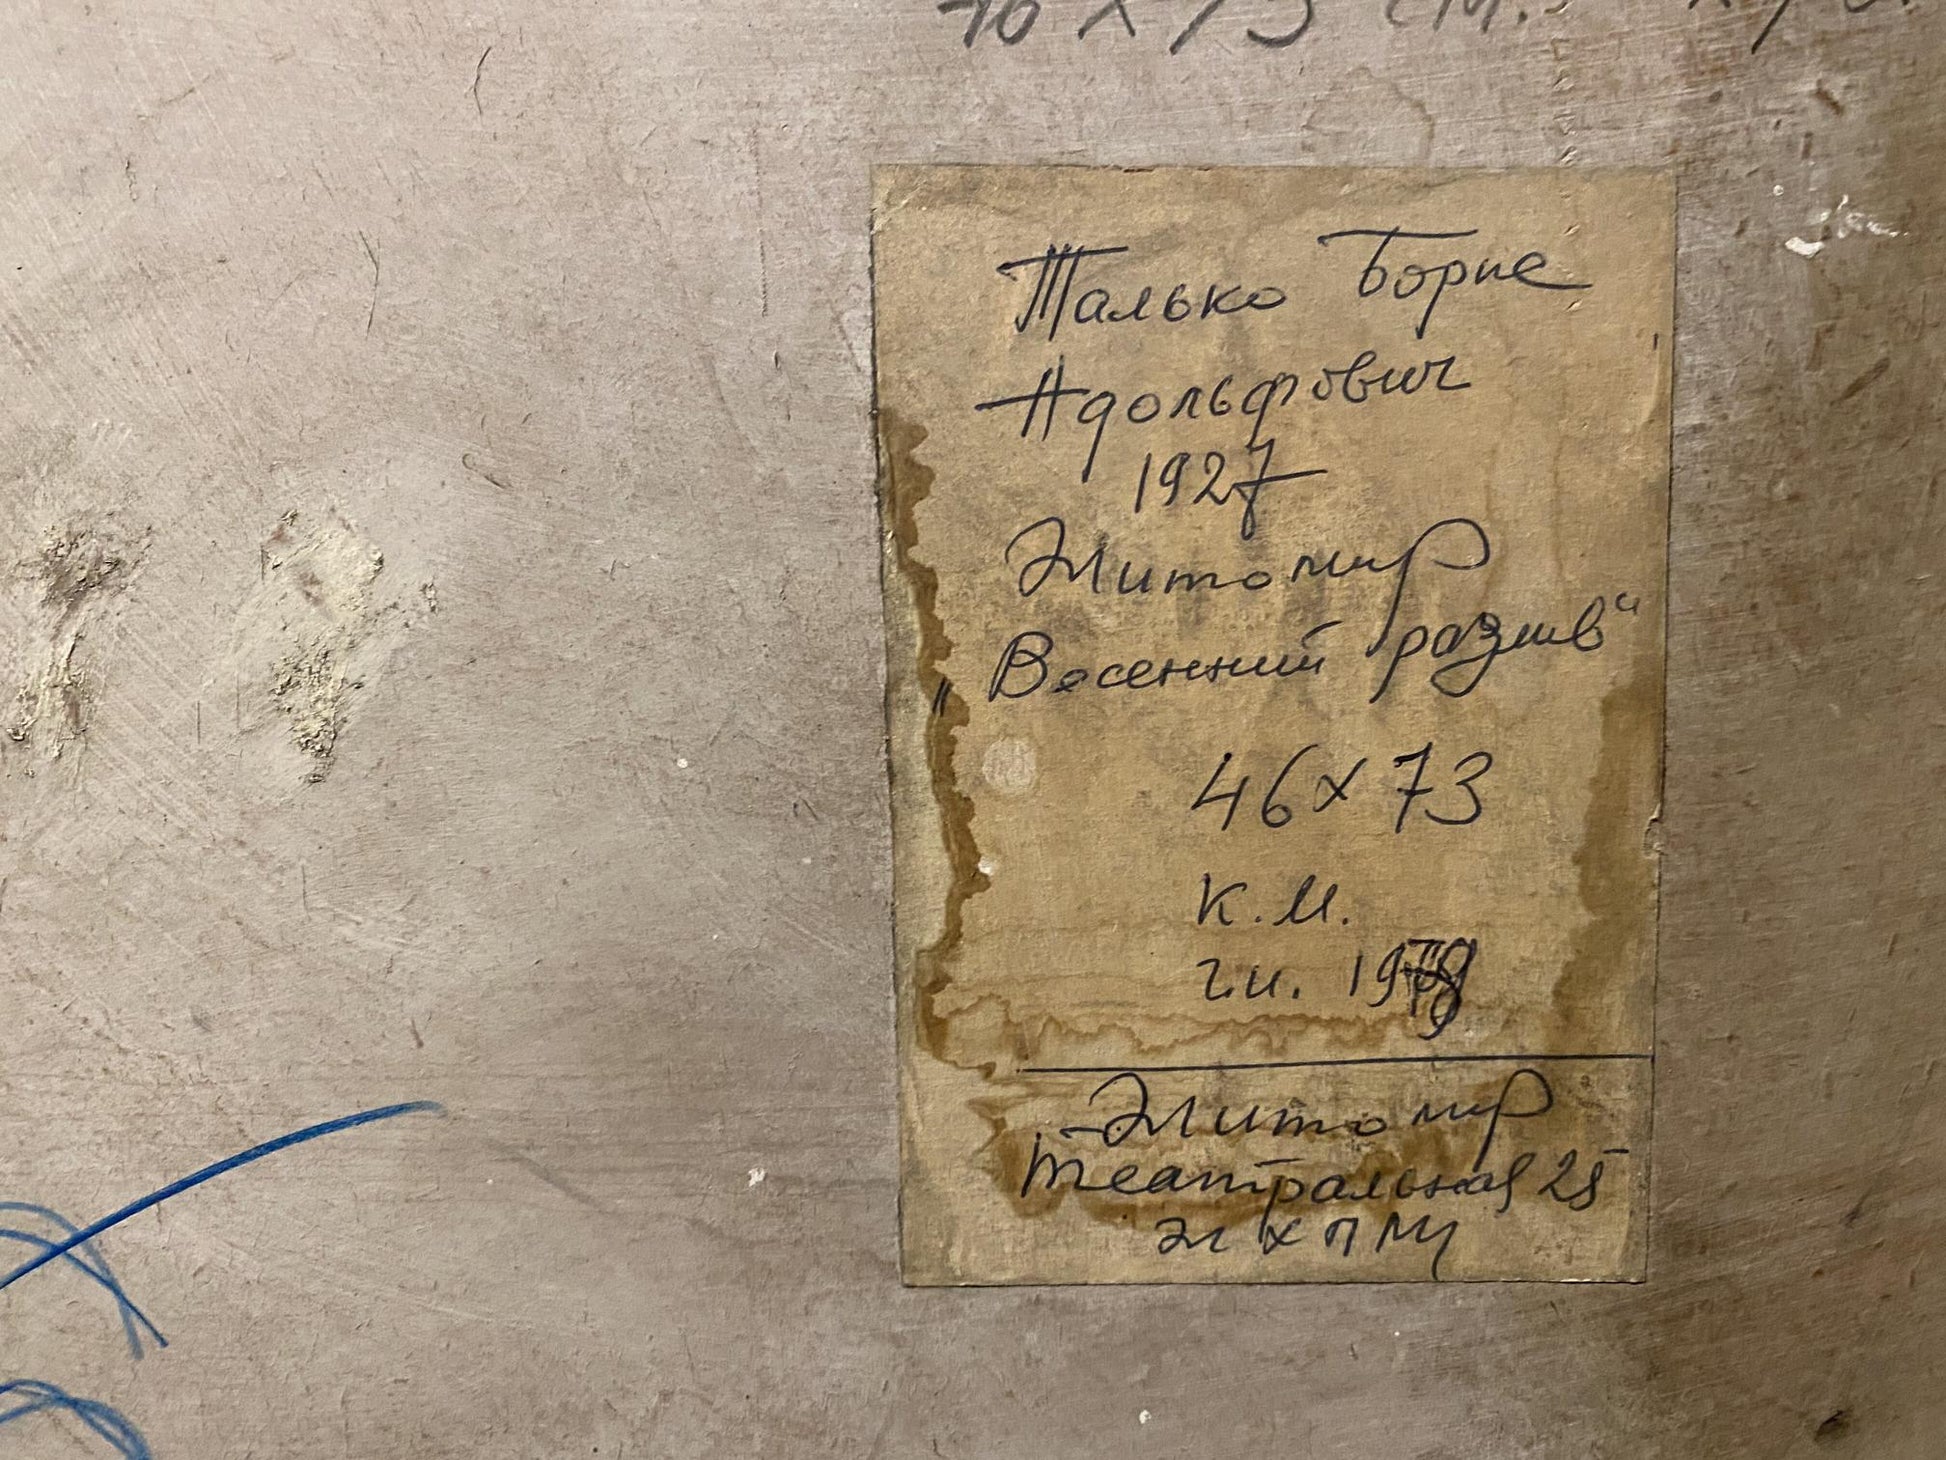 46 х 73 см.
Талько Борис
Адольфович
1927
Житомир
„Весенний розлив“
46х73
К.М.
г.и. 19
Житомир
Театральная 25
ЖХПМ